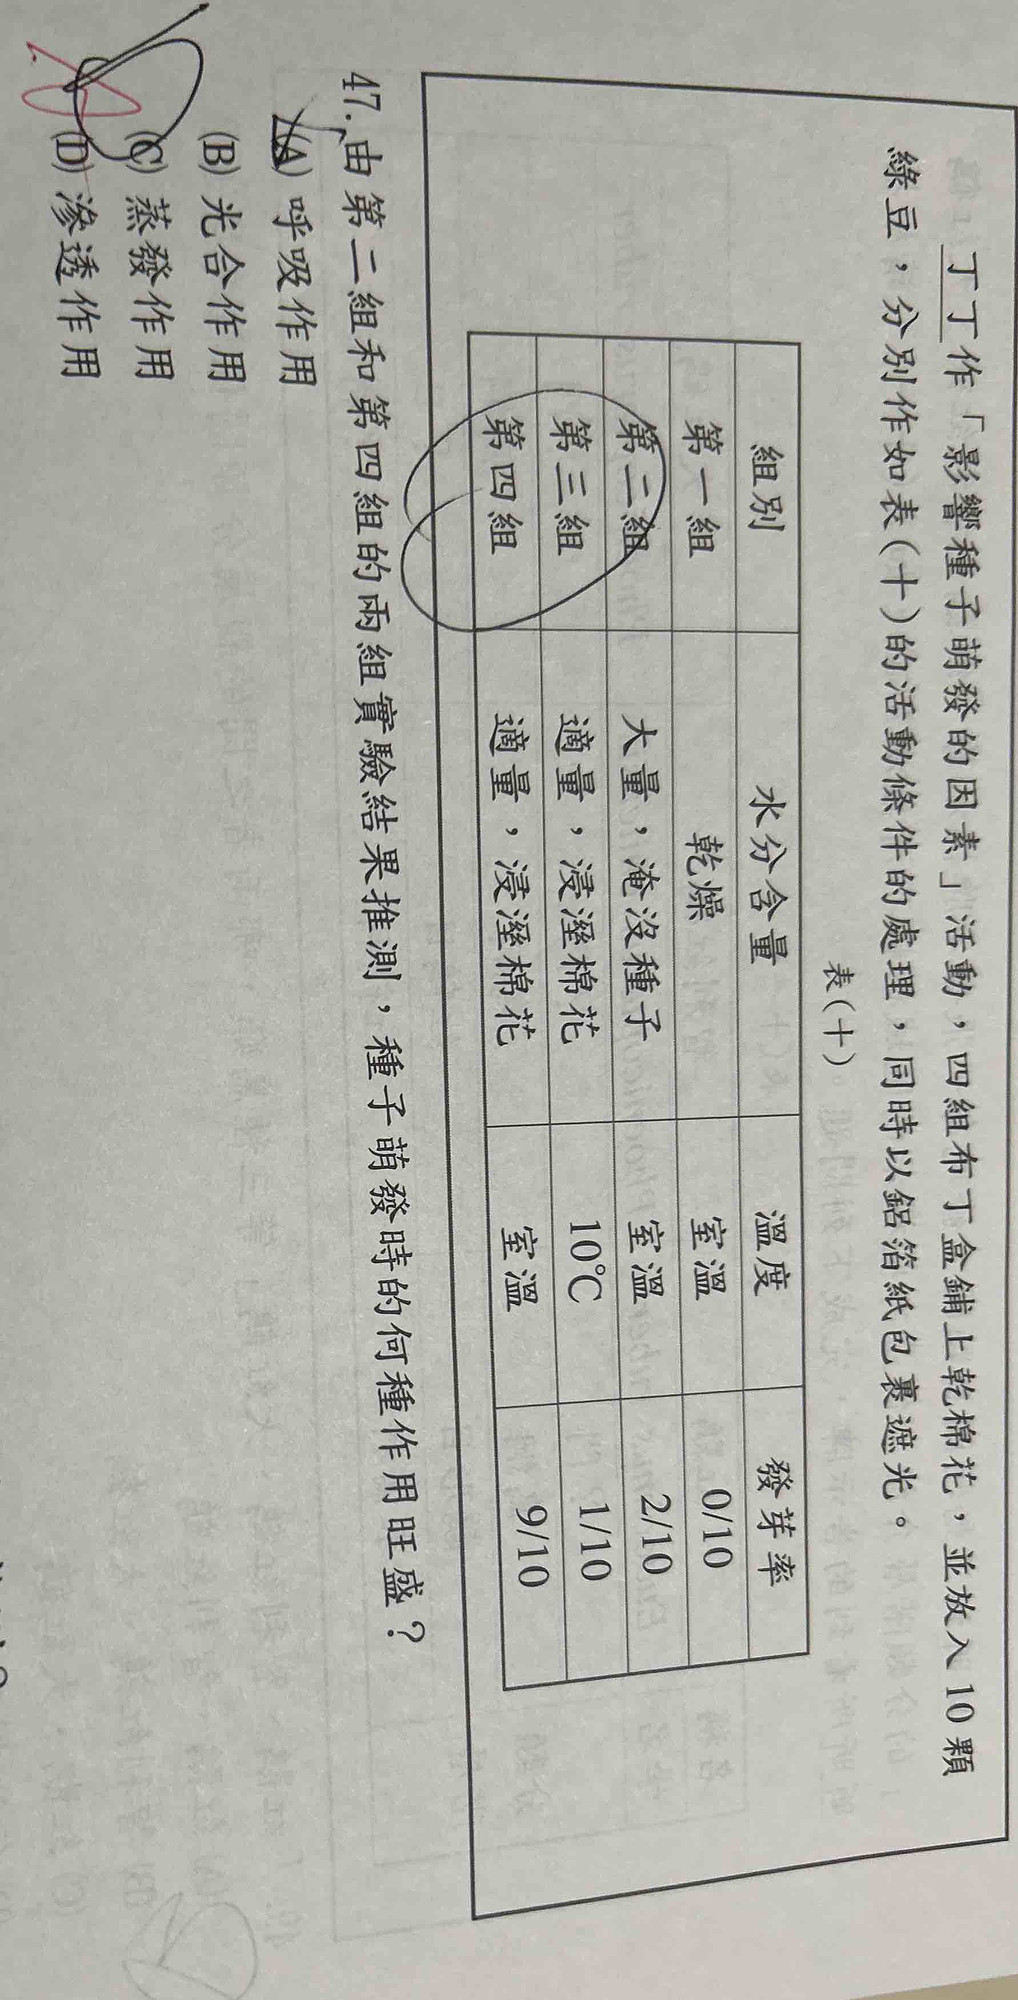 丁丁作「影響種子萌發的因素」活動，四組布丁盒鋪上乾棉花，並放入10顆
綠豆，分別作如表(十)的活動條件的處理，同時以鋁箔紙包裹遮光。
表(十)
組別 水分含量 溫度 發芽率
第一組 乾燥 室溫 0/10
第二組 大量，淹沒種子 室溫 2/10
第三組 適量，浸溼棉花 10℃ 1/10
第四組 適量，浸溼棉花 室溫 9/10
47.由第二組和第四組的兩組實驗結果推測，種子萌發時的何種作用旺盛？
(A) 呼吸作用
(B) 光合作用
(C) 蒸發作用
(D) 滲透作用